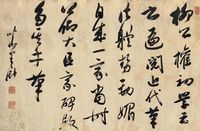 柳公權初學王
書遍閱近代筆
法體勢勁媚
自成一家當時
公卿大臣家碑板
手筆